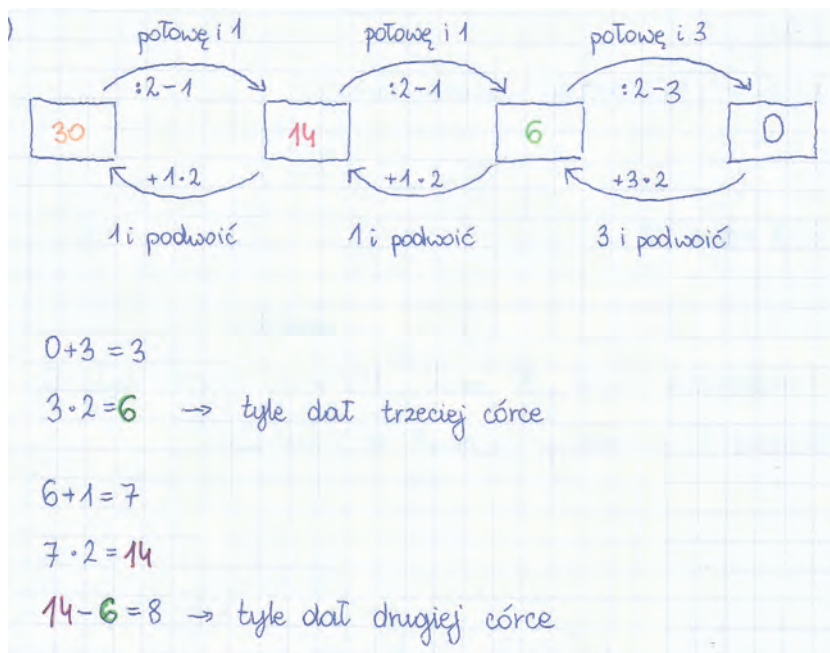 )
połowę i 1 połowę i 1 połowę i 3
:2-1 :2-1 :2-3
30 14 6 0
+1·2 +1·2 +3·2
1 i podwoić 1 i podwoić 3 i podwoić
0+3=3
3·2=6 → tyle dał trzeciej córce
6+1=7
7·2=14
14-6=8 → tyle dał drugiej córce